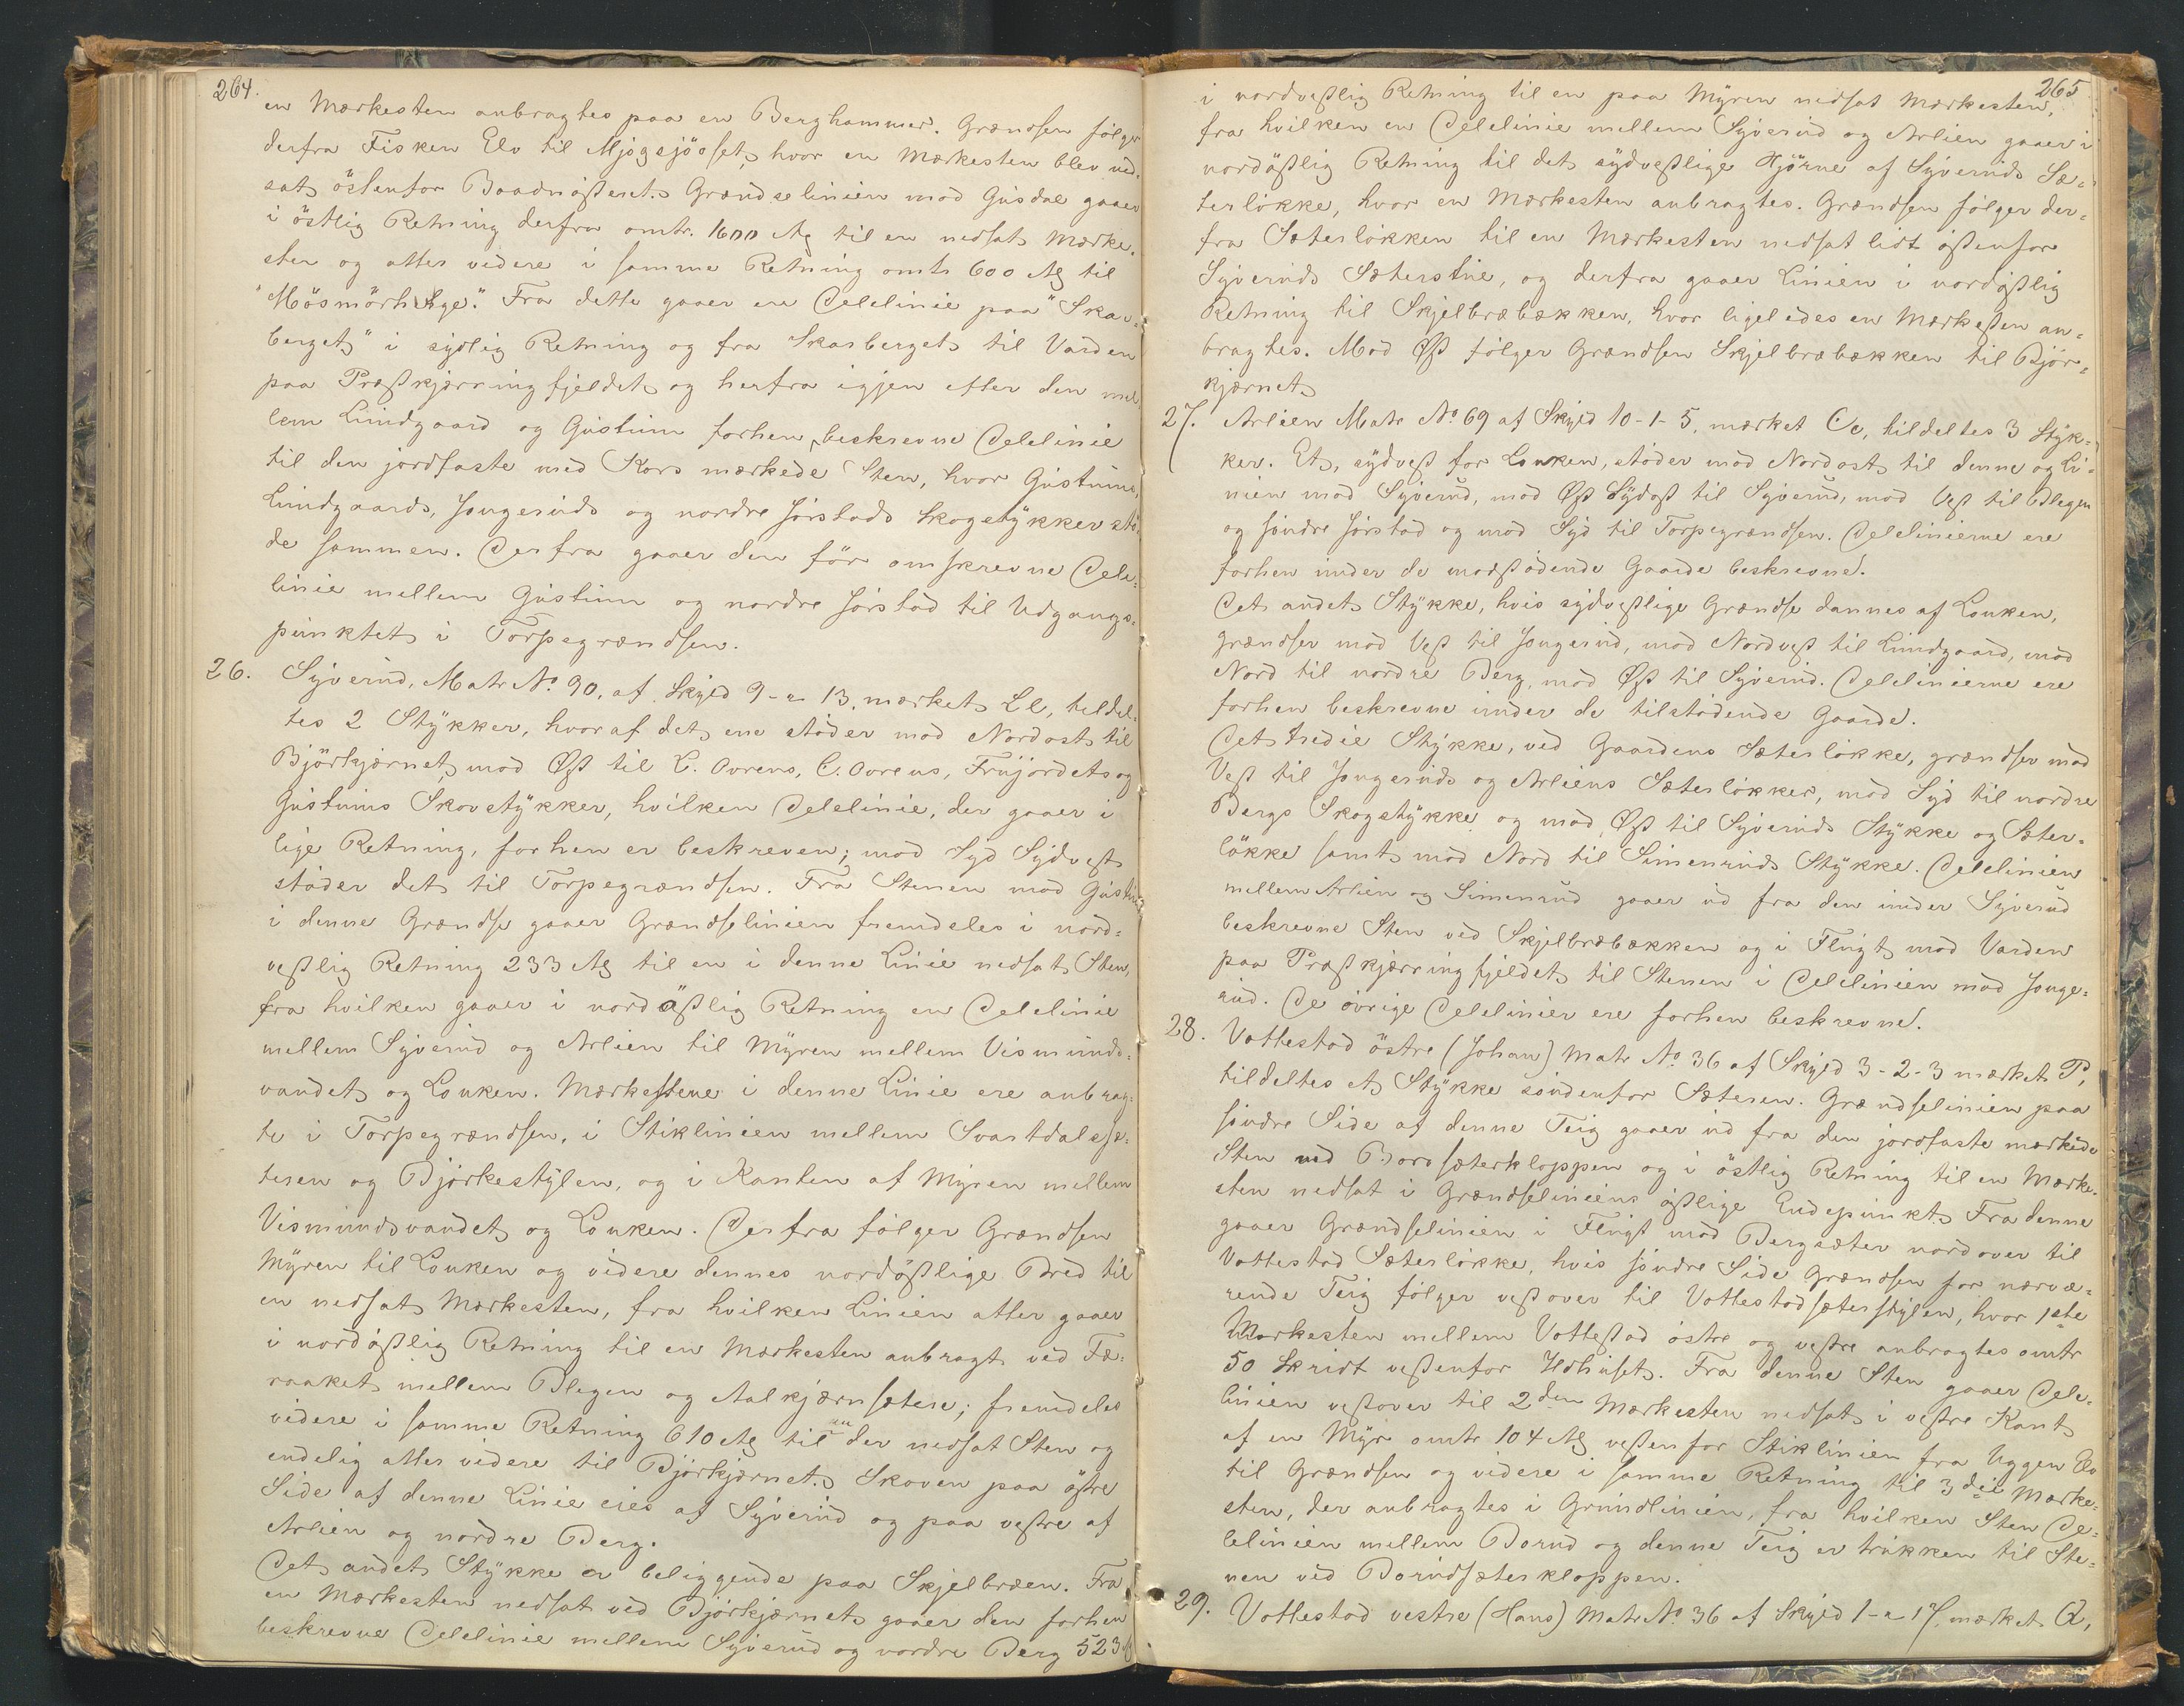 264.
en Mærkesten anbragtes paa en Berghammer. Grændsen følger
derfra Fisken Elv til Mjøgsjöoset, hvor en Mærkesten blev ned-
sat östenfor Baadnøsteret. Grændselinien mod Gusdal gaaer
i östlig Retning derfra omtr. 1600 Al til en nedsat Mærke-
sten og atter videre i samme Retning omtr 600 Al til
"Mösmörhøge". Fra dette gaaer en Delelinie paa "Skar-
berget" i sydlig Retning og fra Skarberget til Varden
paa Præstkjærringfjeldet og herfra igjen efter den mel-
lem Lundgaard og Gustum forhen beskrevne Delelinie
til den jordfaste med Kors mærkede Sten, hvor Gustums,
Lundgaards, Jongeruds og nordre Jørstads Skogstykker stö-
de sammen. Derfra gaaer den før omskrevne Dele-
linie mellem Gustum og nordre Jørstad til Udgangs-
punktet i Torpegrændsen.
26. Syverud, Matr No. 90, af Skyld 9 - " 13, mærket Ll, tildel-
tes 2 Stykker, hvoraf det ene støder mod Nordost til
Björkjærnet, mod Øst til L. Ovrens, C. Ovrens, Frujordets og
Gustums Skovstykker, hvilken Delelinie, der gaaer i
lige Retning, forhen er beskreven; mod Syd Sydvest
støder det til Torpegrændsen. Fra Stenen mod Gustum
i denne Grændse gaaer Grændselinien fremdeles i nord-
vestlig Retning 233 Al til en i denne Linie nedsat Sten,
fra hvilken gaaer i nordöstlig Retning en Delelinie
mellem Syverud og Arlien til Myren mellem Vismunds-
vandet og Louken. Mærkestene i denne Linie ere anbrag-
te i Torpegrændsen, i Stiklinien mellem Svartdalssæ-
teren og Björkestylen, og i Kanten af Myren mellem
Vismundsvandet og Louken. Derfra følger Grændsen
Myren til Louken og videre dennes nordöstlige Bred til
en nedsat Mærkesten, fra hvilken Linien atter gaaer
i nordöstlig Retning til en Mærkesten anbragt ved Fæ-
raaket mellem Blegen og Aalkjærnsætere; fremdeles
videre i samme Retning 610 Al til en der nedsat Sten og
endelig atter videre til Björkjærnet. Skoven paa östre
Side af denne Linie eies af Syverud og paa vestre af
Arlien og nordre Berg.
Det andet Stykke er beliggende paa Skjelbræen. Fra
en Mærkesten nedsat ved Björkjærnet gaaer den forhen
beskrevne Delelinie mellem Syverud og nordre Berg 523 Al
265
i nordvestlig Retning til en paa Myren nedsat Mærkesten,
fra hvilken en Delelinie mellem Syverud og Arlien gaaer i
nordöstlig Retning til det sydvestlige Hjörne af Syveruds Sæ-
terløkke, hvor en Mærkesten anbragtes. Grændsen følger der-
fra Sæterløkken til en Mærkesten nedsat lidt östenfor
Syveruds Sæterstue, og derfra gaaer Linien i nordöstlig
Retning til Skjelbræbækken, hvor ligeledes en Mærkesten an-
bragtes. Mod Øst følger Grændsen Skjelbræbækken til Bjør-
kjærnet.
27. Arlien Matr No. 69 af Skyld 10-1-5, mærket Cc, tildeltes 3 Styk-
ker. Et, sydvest for Louken, støder mod Nordost til denne og Li-
nien mod Syverud, mod Øst Sydost til Syverud, mod Vest til Blegen
og søndre Jørstad og mod Syd til Torpegrændsen. Delelinierne ere
forhen under de modstødende Gaarde beskrevne.
Det andet Stykke, hvis sydvestlige Grændse dannes af Louken,
grændser mod Vest til Jongerud, mod Nordvest til Lundgaard, mod
Nord til nordre Berg, mod Øst til Syverud. Delelinierne ere
forhen beskrevne under de tilstødende Gaarde.
Det tredie Stykke, ved Gaardens Sæterløkke, grændser mod
Vest til Jongeruds og Arliens Sæterløkker, mod Syd til nordre
Bergs Skogstykke og mod Øst til Syveruds Stykke og Sæter-
løkke samt mod Nord til Simenruds Stykke. Delelinien
mellem Arlien og Simenrud gaaer ud fra den under Syverud
beskrevne Sten ved Skjelbræbækken og i Flugt mod Varden
paa Præstkjærringfjeldet til Stenen i Delelinien mod Jonge-
rud. De øvrige Delelinier ere forhen beskrevne.
28. Vottestad östre (Johan) Matr No. 36 af Skyld 3-2-3 mærket P,
tildeltes et Stykke søndenfor Sæteren. Grændselinien paa
søndre Side af denne Teig gaaer ud fra den jordfaste mærkede
Sten ved Borudsæterkloppen og i östlig Retning til en Mærke-
sten nedsat i Grændseliniens östlige Endepunkt. Fra denne
gaaer Grændselinien i Flugt mod Bergsæter nordover til
Vottestad Sæterløkke, hvis søndre Side Grændsen for nærvæ-
rende Teig følger vestover til Vottestadsæterstylen, hvor 1ste
Mærkesten mellem Vottestad østre og vestre anbragtes omtr
50 Skridt vestenfor Ildhuset. Fra denne Sten gaaer Dele-
linien vestover til 2den Mærkesten nedsat i vestre Kant
af en Myr omtr 104 Al vestenfor Stiklinien fra Uggen Elv
til Grændsen og videre i samme Retning til 3die Mærke-
sten, der anbragtes i Grundlinien, fra hvilken Sten De-
lelinien mellem Borud og denne Teig er trukken til Ste-
nen ved Borudsæterkloppen.
29. Vottestad vestre (Hans) Matr No. 36 af Skyld 1 - " 17, mærket Q,